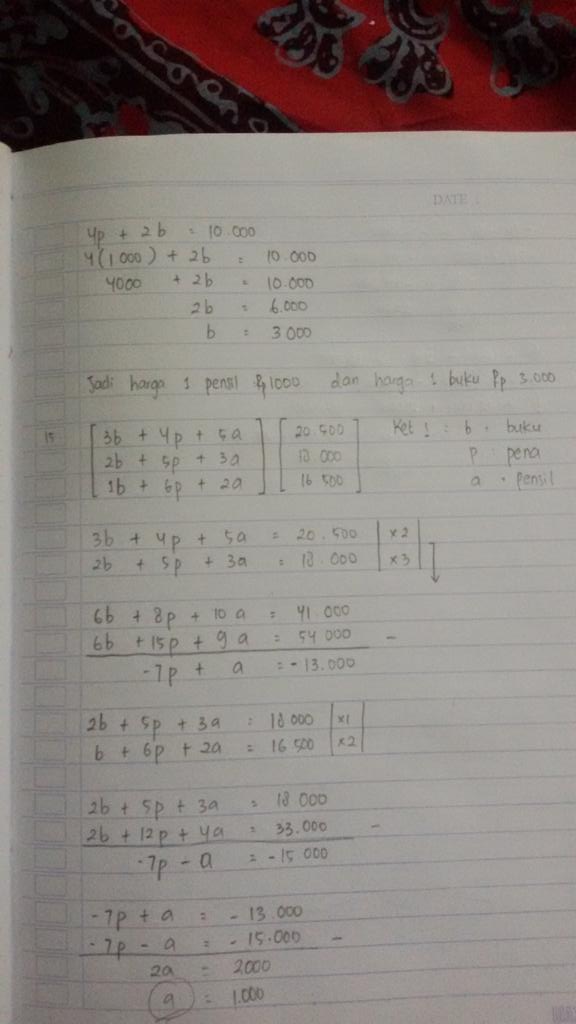 DATE :
4p + 2b = 10.000
4(1000) + 2b = 10.000
4000 + 2b = 10.000
2b = 6.000
b = 3000
Jadi harga 1 pensil Rp 1000 dan harga 1 buku Rp 3.000
15 [3b + 4p + 5a] [20.500] Ket ! : b = buku
[2b + 5p + 3a] [18.000] p : pena
[1b + 6p + 2a] [16 500] a = pensil
3b + 4p + 5a = 20.500 | x2 |
2b + 5p + 3a = 18.000 | x3 | ↓
6b + 8p + 10a = 41.000
6b + 15p + 9a = 54 000 -
-7p + a = -13.000
2b + 5p + 3a = 18 000 | x1 |
b + 6p + 2a = 16 500 | x2 |
2b + 5p + 3a = 18 000
2b + 12p + 4a = 33.000 -
-7p - a = -15 000
-7p + a = -13 000
-7p - a = -15.000 -
2a = 2000
a = 1.000